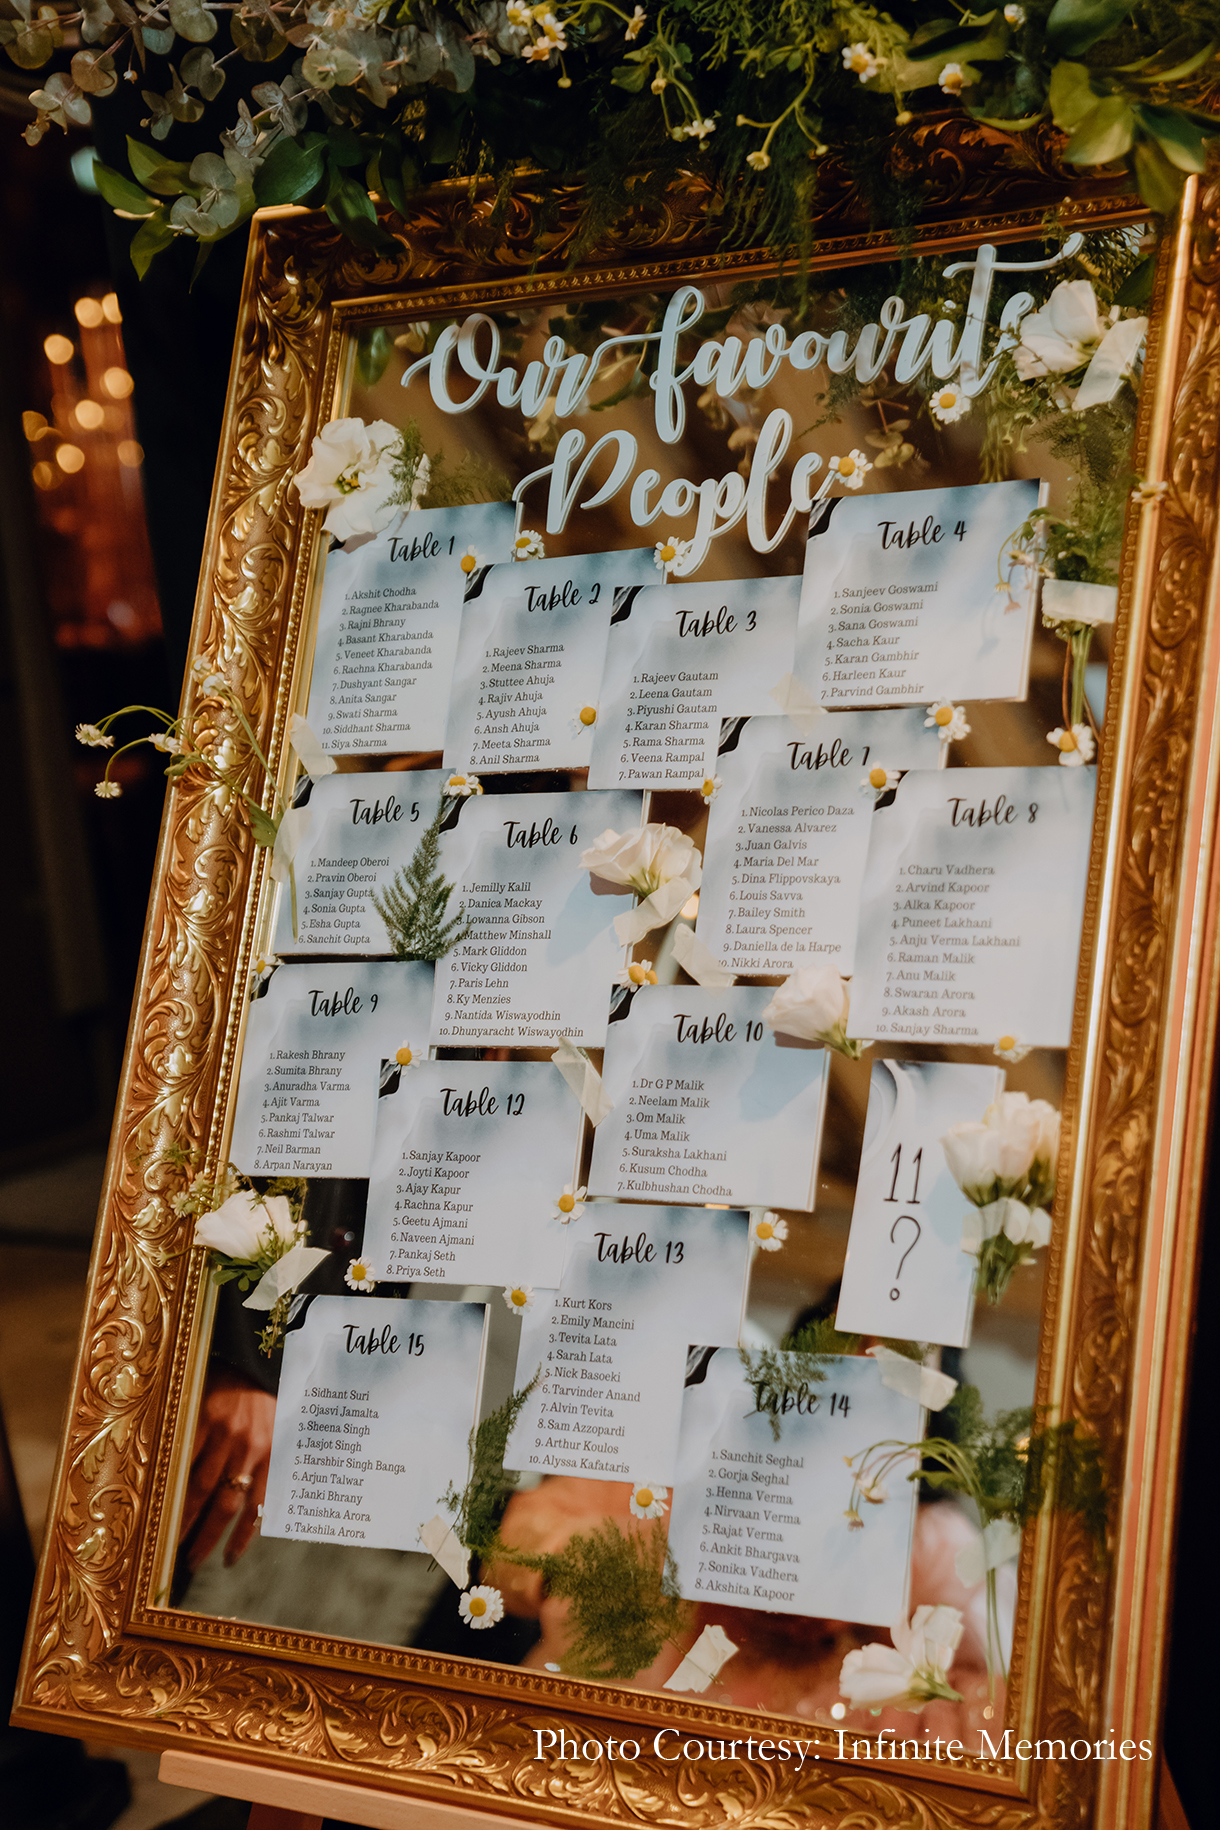 Our favourite
People
Table 1
1. Akshit Chodha
2. Ragnee Kharabanda
3. Rajni Bhrany
4. Basant Kharabanda
5. Veneet Kharabanda
6. Rachna Kharabanda
7. Dushyant Sangar
8. Anita Sangar
9. Swati Sharma
10. Siddhant Sharma
11. Siya Sharma
Table 2
1. Rajeev Sharma
2. Meena Sharma
3. Stuttee Ahuja
4. Rajiv Ahuja
5. Ayush Ahuja
6. Ansh Ahuja
7. Meeta Sharma
8. Anil Sharma
Table 3
1. Rajeev Gautam
2. Leena Gautam
3. Piyushi Gautam
4. Karan Sharma
5. Rama Sharma
6. Veena Rampal
7. Pawan Rampal
Table 4
1. Sanjeev Goswami
2. Sonia Goswami
3. Sana Goswami
4. Sacha Kaur
5. Karan Gambhir
6. Harleen Kaur
7. Parvind Gambhir
Table 5
1. Mandeep Oberoi
2. Pravin Oberoi
3. Sanjay Gupta
4. Sonia Gupta
5. Esha Gupta
6. Sanchit Gupta
Table 6
1. Jemilly Kalil
2. Danica Mackay
3. Lowanna Gibson
4. Matthew Minshall
5. Mark Gliddon
6. Vicky Gliddon
7. Paris Lehn
8. Ky Menzies
9. Nantida Wiswayodhin
10. Dhunyaracht Wiswayodhin
Table 7
1. Nicolas Perico Daza
2. Vanessa Alvarez
3. Juan Galvis
4. Maria Del Mar
5. Dina Flippovskaya
6. Louis Savva
7. Bailey Smith
8. Laura Spencer
9. Daniella de la Harpe
10. Nikki Arora
Table 8
1. Charu Vadhera
2. Arvind Kapoor
3. Alka Kapoor
4. Puneet Lakhani
5. Anju Verma Lakhani
6. Raman Malik
7. Anu Malik
8. Swaran Arora
9. Akash Arora
10. Sanjay Sharma
Table 9
1. Rakesh Bhrany
2. Sumita Bhrany
3. Anuradha Varma
4. Ajit Varma
5. Pankaj Talwar
6. Rashmi Talwar
7. Neil Barman
8. Arpan Narayan
Table 12
1. Sanjay Kapoor
2. Joyti Kapoor
3. Ajay Kapur
4. Rachna Kapur
5. Geetu Ajmani
6. Naveen Ajmani
7. Pankaj Seth
8. Priya Seth
Table 10
1. Dr G P Malik
2. Neelam Malik
3. Om Malik
4. Uma Malik
5. Suraksha Lakhani
6. Kusum Chodha
7. Kulbhushan Chodha
11
?
Table 15
1. Sidhant Suri
2. Ojasvi Jamalta
3. Sheena Singh
4. Jasjot Singh
5. Harshbir Singh Banga
6. Arjun Talwar
7. Janki Bhrany
8. Tanishka Arora
9. Takshila Arora
Table 13
1. Kurt Kors
2. Emily Mancini
3. Tevita Lata
4. Sarah Lata
5. Nick Basoeki
6. Tarvinder Anand
7. Alvin Tevita
8. Sam Azzopardi
9. Arthur Koulos
10. Alyssa Kafataris
Table 14
1. Sanchit Seghal
2. Gorja Seghal
3. Henna Verma
4. Nirvaan Verma
5. Rajat Verma
6. Ankit Bhargava
7. Sonika Vadhera
8. Akshita Kapoor
Photo Courtesy: Infinite Memories